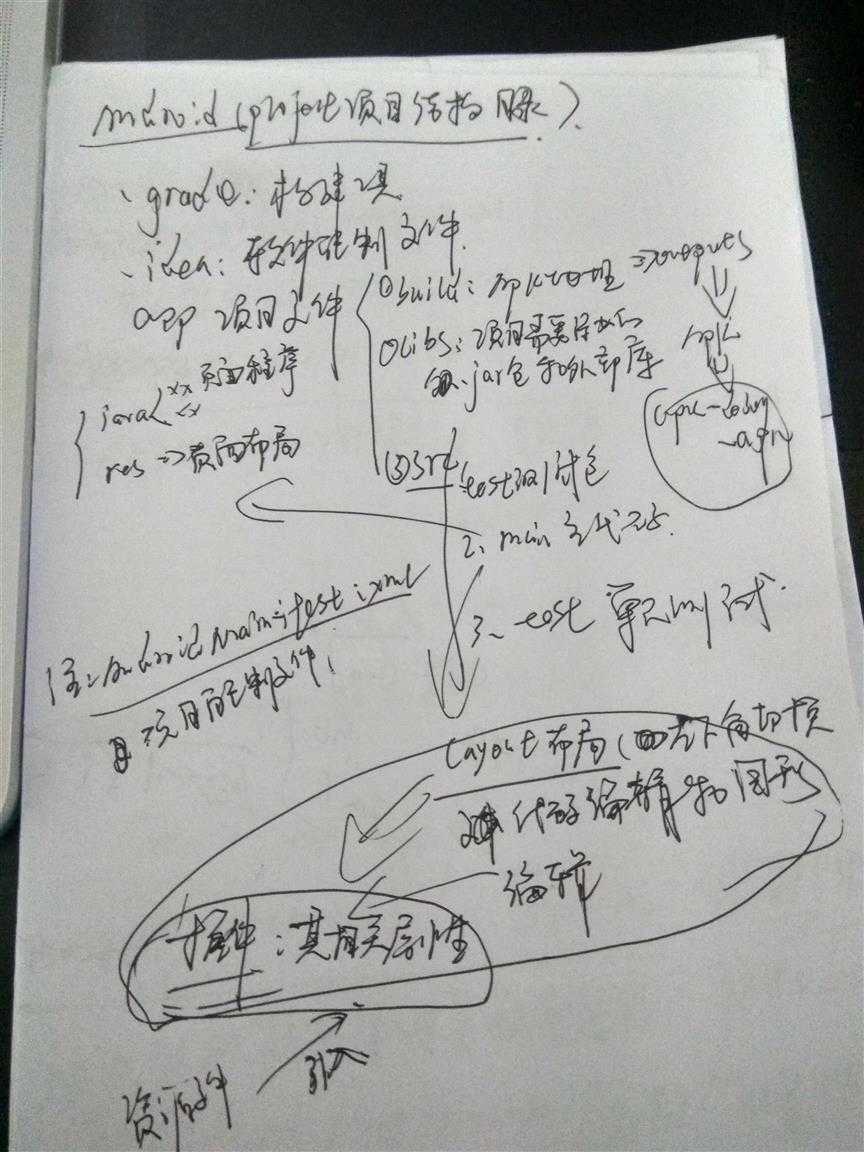 android (project项目结构目录)
、gradle: 构建项
、idea: 软件控制文件
app 项目文件
①build: apk处理 => outputs
apk
apk-debug
.apk
②libs: 项目需要导入的
.jar包和外部库
java xx 页面程序
xx
res => 页面布局
③src
test测试包
2、main 主代码.
3、test 单元测试.
注: AndroidManifest.xml
项目配置文件
layout 布局 (左下角切换
代码编辑和图形
编辑
控件: 其相关属性
资源文件
引入